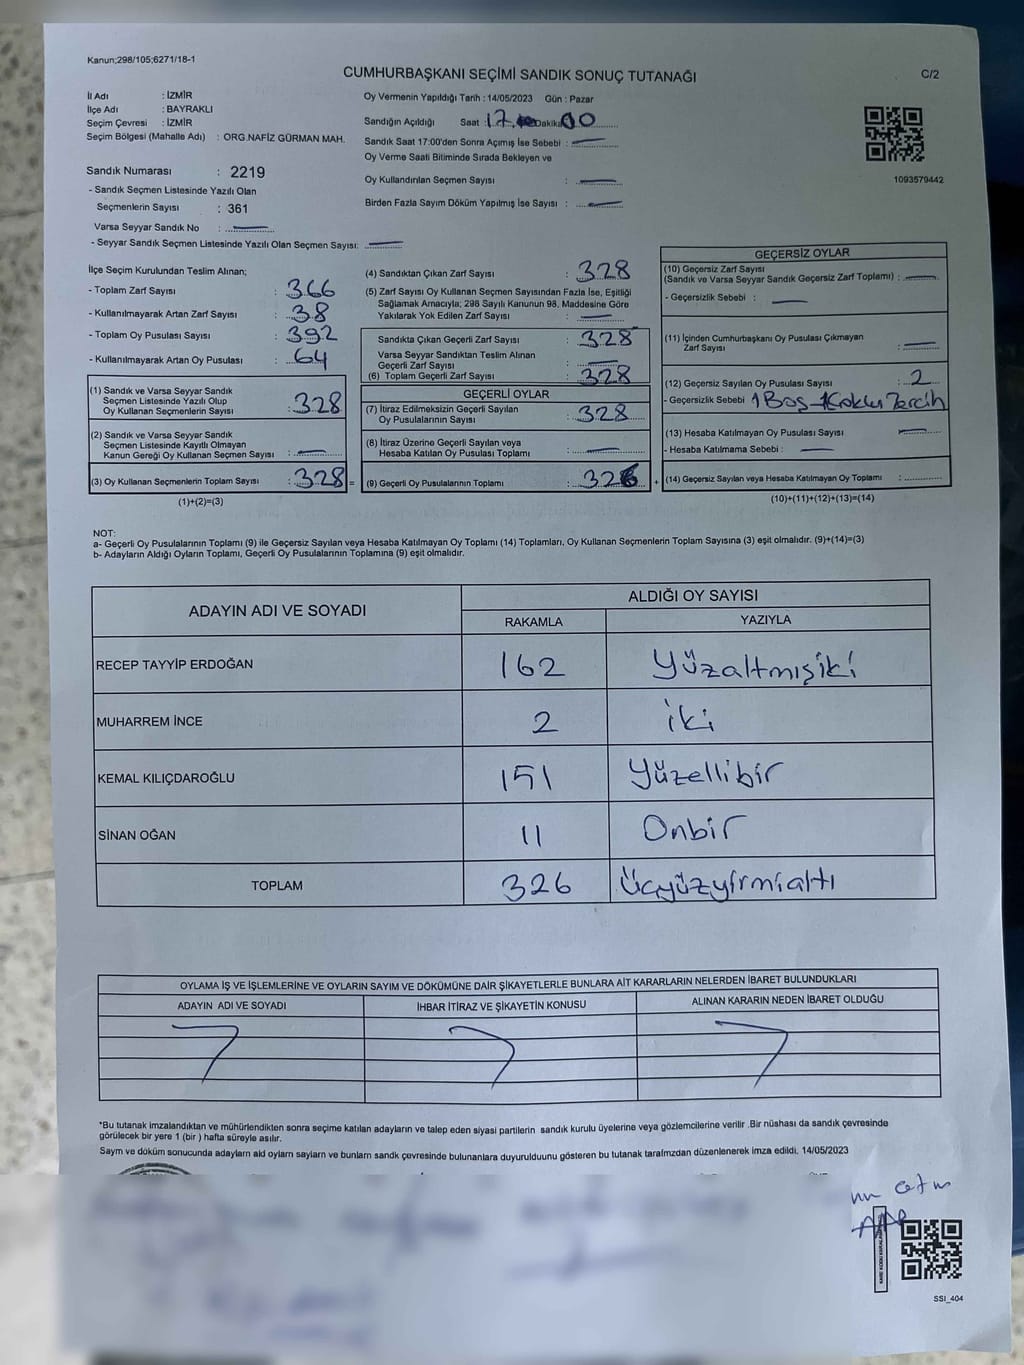 Kanun;298/105;6271/18-1
CUMHURBAŞKANI SEÇİMİ SANDIK SONUÇ TUTANAĞI
C/2
İl Adı : İZMİR
İlçe Adı : BAYRAKLI
Seçim Çevresi : İZMİR
Seçim Bölgesi (Mahalle Adı) : ORG.NAFİZ GÜRMAN MAH.
Sandık Numarası : 2219
- Sandık Seçmen Listesinde Yazılı Olan
Seçmenlerin Sayısı : 361
Varsa Seyyar Sandık No :
- Seyyar Sandık Seçmen Listesinde Yazılı Olan Seçmen Sayısı:
Oy Vermenin Yapıldığı Tarih : 14/05/2023 Gün : Pazar
Sandığın Açıldığı Saat : 17 Dakika 00
Sandık Saat 17:00'den Sonra Açımış İse Sebebi :
Oy Verme Saati Bitiminde Sırada Bekleyen ve
Oy Kullandırılan Seçmen Sayısı :
Birden Fazla Sayım Döküm Yapılmış İse Sayısı :
1093579442
İlçe Seçim Kurulundan Teslim Alınan;
- Toplam Zarf Sayısı : 366
- Kullanılmayarak Artan Zarf Sayısı : 38
- Toplam Oy Pusulası Sayısı : 392
- Kullanılmayarak Artan Oy Pusulası : 64
(1) Sandık ve Varsa Seyyar Sandık
Seçmen Listesinde Yazılı Olup
Oy Kullanan Seçmenlerin Sayısı : 328
(2) Sandık ve Varsa Seyyar Sandık
Seçmen Listesinde Kayıtlı Olmayan
Kanun Gereği Oy Kullanan Seçmen Sayısı :
(3) Oy Kullanan Seçmenlerin Toplam Sayısı : 328 =
(1)+(2)=(3)
(4) Sandıktan Çıkan Zarf Sayısı : 328
(5) Zarf Sayısı Oy Kullanan Seçmen Sayısından Fazla İse, Eşitliği
Sağlamak Amacıyla; 298 Sayılı Kanunun 98. Maddesine Göre
Yakılarak Yok Edilen Zarf Sayısı :
Sandıkta Çıkan Geçerli Zarf Sayısı : 328
Varsa Seyyar Sandıktan Teslim Alınan
Geçerli Zarf Sayısı :
(6) Toplam Geçerli Zarf Sayısı : 328
GEÇERLİ OYLAR
(7) İtiraz Edilmeksizin Geçerli Sayılan
Oy Pusulalarının Sayısı : 328
(8) İtiraz Üzerine Geçerli Sayılan veya
Hesaba Katılan Oy Pusulası Toplamı :
(9) Geçerli Oy Pusulalarının Toplamı : 326 +
GEÇERSİZ OYLAR
(10) Geçersiz Zarf Sayısı
(Sandık ve Varsa Seyyar Sandık Geçersiz Zarf Toplamı) :
- Geçersizlik Sebebi :
(11) İçinden Cumhurbaşkanı Oy Pusulası Çıkmayan
Zarf Sayısı :
(12) Geçersiz Sayılan Oy Pusulası Sayısı : 2
- Geçersizlik Sebebi 1 Boş - 1 Çoklu Tercih
(13) Hesaba Katılmayan Oy Pusulası Sayısı :
- Hesaba Katılmama Sebebi :
(14) Geçersiz Sayılan veya Hesaba Katılmayan Oy Toplamı :
(10)+(11)+(12)+(13)=(14)
NOT:
a- Geçerli Oy Pusulalarının Toplamı (9) ile Geçersiz Sayılan veya Hesaba Katılmayan Oy Toplamı (14) Toplamları, Oy Kullanan Seçmenlerin Toplam Sayısına (3) eşit olmalıdır. (9)+(14)=(3)
b- Adayların Aldığı Oyların Toplamı, Geçerli Oy Pusulalarının Toplamına (9) eşit olmalıdır.
ADAYIN ADI VE SOYADI
ALDIĞI OY SAYISI
RAKAMLA YAZIYLA
RECEP TAYYİP ERDOĞAN 162 Yüzaltmışiki
MUHARREM İNCE 2 iki
KEMAL KILIÇDAROĞLU 151 Yüzellibir
SİNAN OĞAN 11 Onbir
TOPLAM 326 Üçyüzyirmialtı
OYLAMA İŞ VE İŞLEMLERİNE VE OYLARIN SAYIM VE DÖKÜMÜNE DAİR ŞİKAYETLERLE BUNLARA AİT KARARLARIN NELERDEN İBARET BULUNDUKLARI
ADAYIN ADI VE SOYADI İHBAR İTİRAZ VE ŞİKAYETİN KONUSU ALINAN KARARIN NEDEN İBARET OLDUĞU
*Bu tutanak imzalandıktan ve mühürlendikten sonra seçime katılan adayların ve talep eden siyasi partilerin sandık kurulu üyelerine veya gözlemcilerine verilir .Bir nüshası da sandık çevresinde
görülecek bir yere 1 (bir ) hafta süreyle asılır.
Saym ve döküm sonucunda adaylarn ald oylarn saylarn ve bunlarn sandk çevresinde bulunanlara duyurulduunu gösteren bu tutanak tarafmzdan düzenlenerek imza edildi. 14/05/2023
SSİ_404